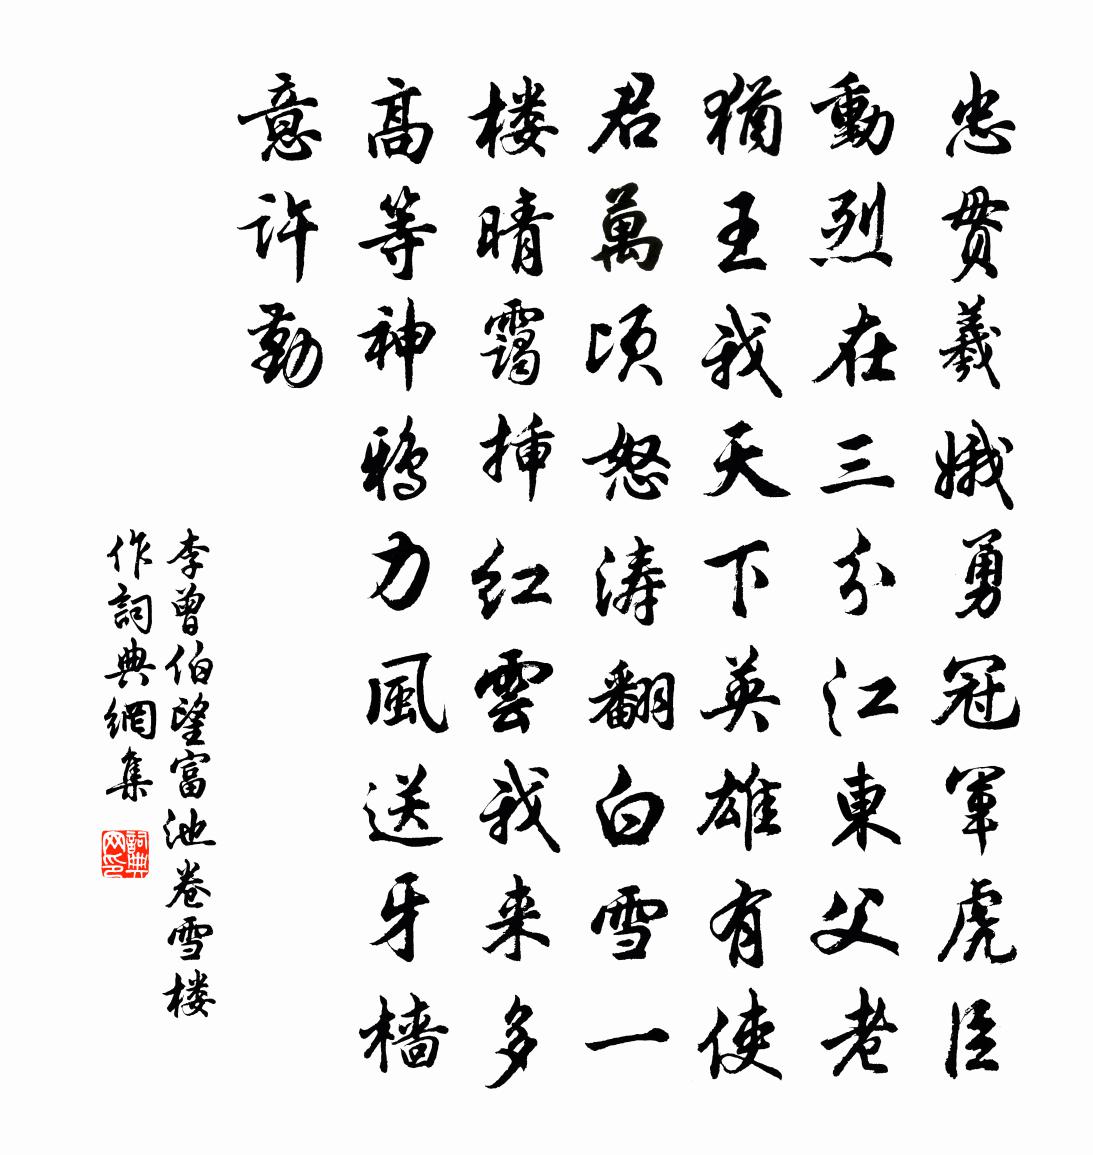 忠贯羲娥勇冠軍虎臣
動烈在三分江東父老
猶王我天下英雄有使
君萬顷怒涛翻白雪一
楼晴靄挿红雲我来多
高等神鴉力風送牙檣
意许勤
李曾伯望富池卷雪楼
作詞典網集
詞典网印